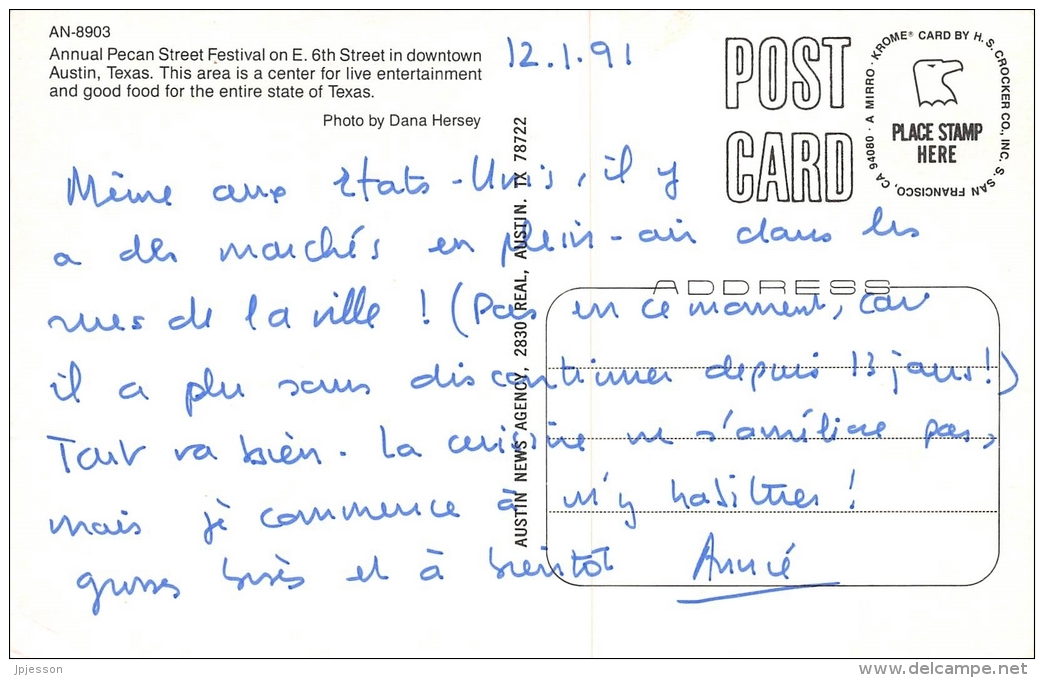 AN-8903
Annual Pecan Street Festival on E. 6th Street in downtown
Austin, Texas. This area is a center for live entertainment
and good food for the entire state of Texas.
Photo by Dana Hersey
12.1.91
POST
CARD
A MIRRO-KROME® CARD BY H. S. CROCKER CO., INC. S. SAN FRANCISCO, CA 94080
PLACE STAMP
HERE
AUSTIN NEWS AGENCY, 2830 REAL, AUSTIN. TX 78722
ADDRESS
Même aux Etats-Unis, il y
a des marchés en plein-air dans les
rues de la ville ! (Pas en ce moment, car
il a plu sans discontinuer depuis 13 jours!)
Tout va bien. La cuisine ne s'améliore pas,
mais je commence à m'y habituer !
grosses bises et à bientôt Annie
jpjesson
delcampe.net